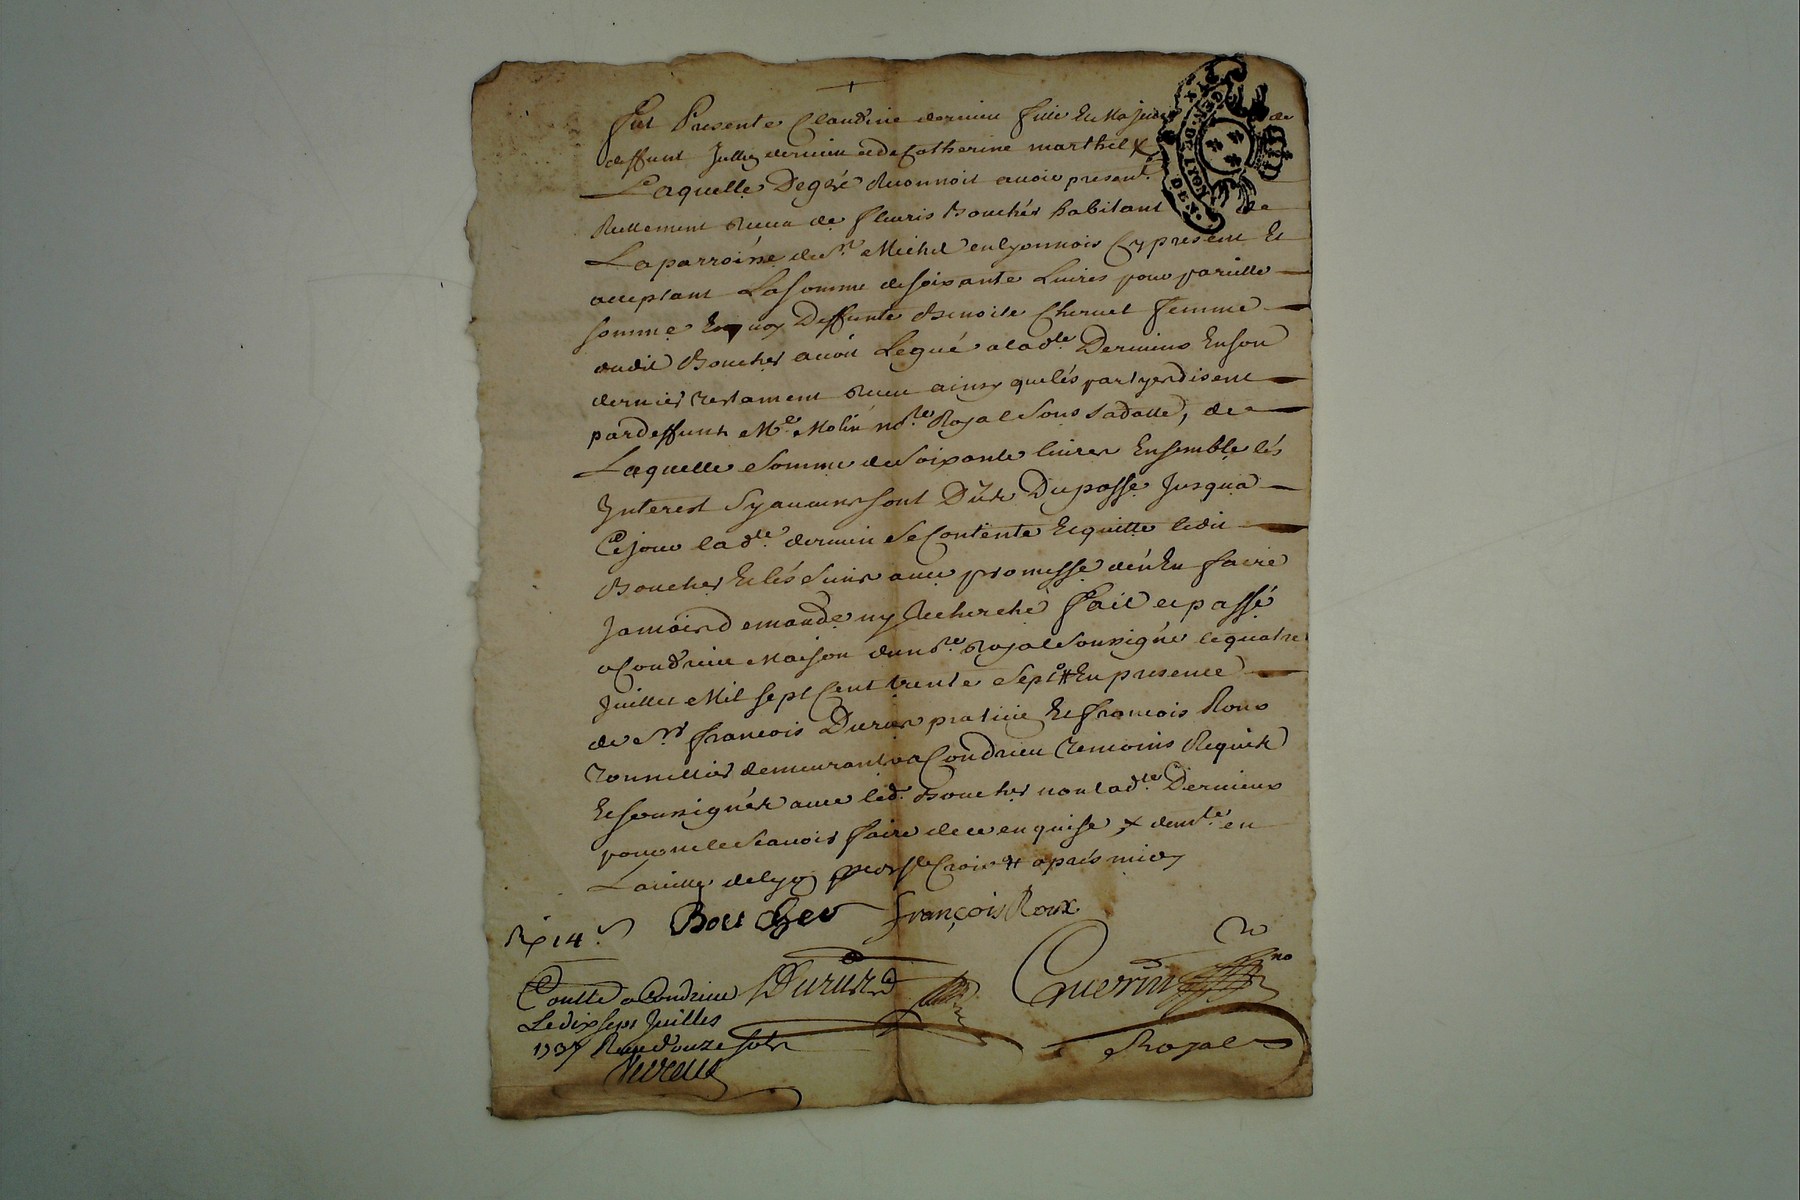 Fut Presente Claudine dervieu fille Et Majeure de
deffunt Jullien dervieu et de Catherine marthel X
Laquelle De gré Reconnoit avoir presente
Reellement Receu de fleuris Boucher habitant de
La parroisse de St Michel en lyonnois Cy present Et
acceptant La Somme de soixante Livres pour pareille
somme En quoy Deffunte Benoite Chervet femme
dudit Boucher avoit Legué a la dte Dervieux En son
dernier testament Receu ainsy que lés partyes disent
par deffunt Me Molin nore Royal Sous sa datte, de
Laquelle Somme de Soixante livres Ensemble lés
Interest Sy aucuns sont Dûs Du passé Jusqua
Ce jour la dte dervieu Se Contente Et quitte ledit
Boucher Et lés Siens avec promesse de n'En faire
Jamais demande ny Recherche fait et passé
a Condrieu Maison du nore Royal Soussigné le quatre
Juillet Mil sept Cent trente Sept # En presence
de Sr francois Durar praticien Et francois Roux
tonnellier demeurants a Condrieu temoins Requis
Et soussignés avec led. Boucher non lad.te Dervieux
pour ne le Scavoir faire de ce enquise X demte en
La ville de lyon ste Croix # aprés midy
Boucher françois Roux
R 14 s
Guerrin no
Royal
Conttlé a Condrieu
Le dix sept Juillet
1737 Receu douze sols